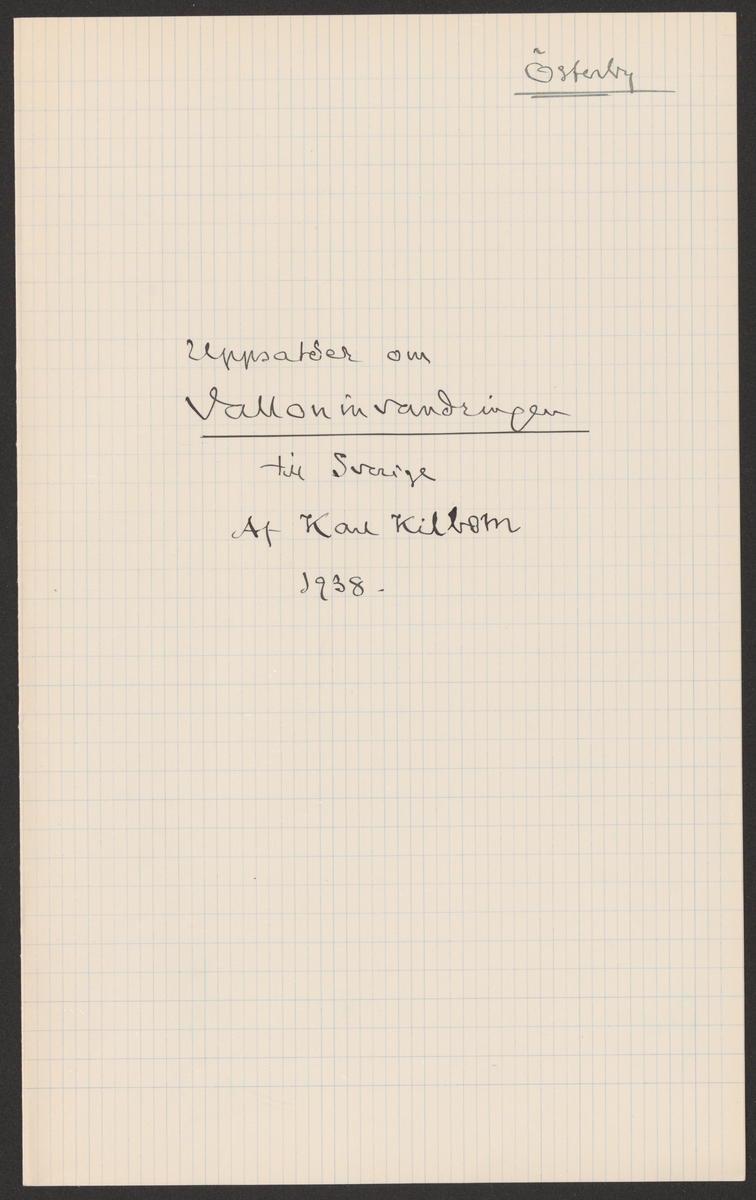 Österby
Uppsatser om
Valloninvandringen
till Sverige
Af Karl Kilbom
1938.